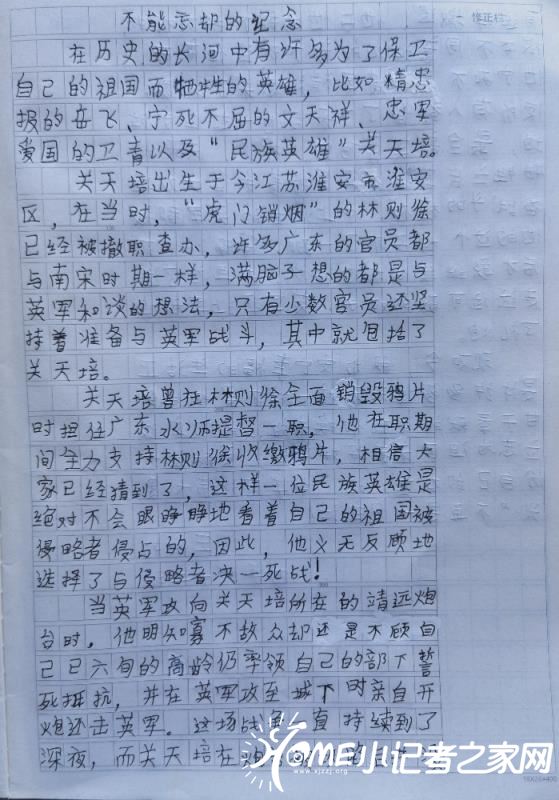 不能忘却的纪念
在历史的长河中有许多为了保卫
自己的祖国而牺牲的英雄，比如精忠
报的岳飞、宁死不屈的文天祥、忠军
爱国的卫青以及“民族英雄”关天培。
关天培出生于今江苏淮安市淮安
区，在当时，“虎门销烟”的林则徐
已经被撤职查办，许多广东的官员都
与南宋时期一样，满脑子想的都是与
英军和谈的想法，只有少数官员还坚
持着准备与英军战斗，其中就包括了
关天培。
关天培曾在林则徐全面销毁鸦片
时担任广东水师提督一职，他在职期
间全力支持林则徐收缴鸦片，相信大
家已经猜到了，这样一位民族英雄是
绝对不会眼睁睁地看着自己的祖国被
侵略者侵占的，因此，他义无反顾地
选择了与侵略者决一死战！
当英军攻向关天培所在的靖远炮
台时，他明知寡不敌众却还是不顾自
己已六旬的高龄仍率领自己的部下誓
死抵抗，并在英军攻至城下时亲自开
炮还击英军。这场战一直持续到了
深夜，而关天培在
HOME小记者之家网
www.xjzzj.org